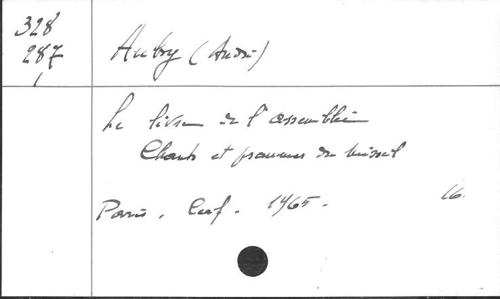 328
287
1
Aubry (André)
Le livre de l'assemblée
Chants et psaumes du missel
Paris. Cerf. 1965. 16.